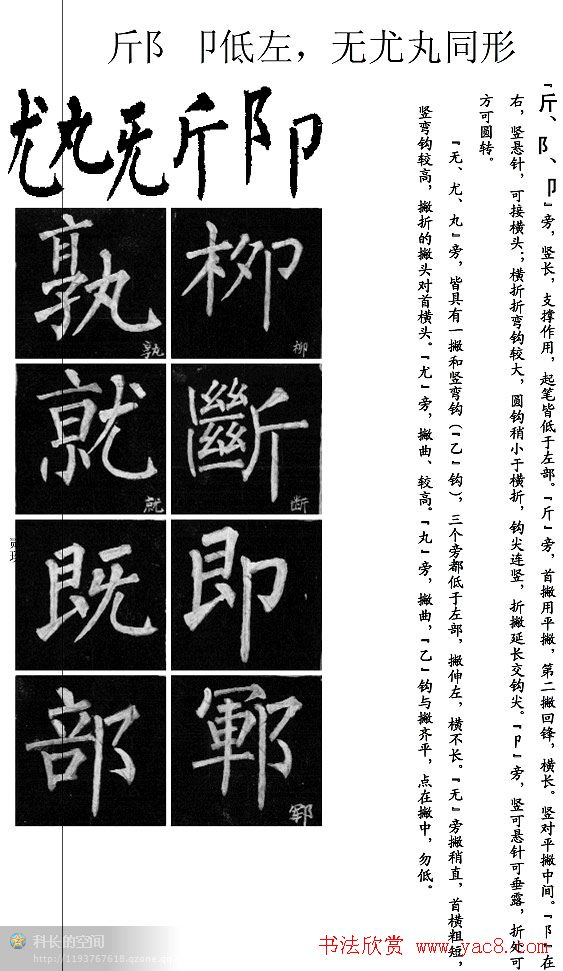 斤阝 卩低左，无尤丸同形
尤丸旡斤阝卩
「斤、阝、卩」旁，竖长，支撑作用，起笔皆低于左部。「斤」旁，首撇用平撇，第二撇回锋，横长。竖对平撇中间。「阝」在
右，竖悬针，可接横头；横折折弯钩较大，圆钩稍小于横折，钩尖连竖，折撇延长交钩尖。「卩」旁，竖可悬针可垂露，折处可
方可圆转。
「无、尤、丸」旁，皆具有一撇和竖弯钩（「乙」钩），三个旁都低于左部，撇伸左，横不长。「无」旁撇稍直，首横粗短，
竖弯钩较高，撇折的撇头对首横头。「尤」旁，撇曲、较高。「丸」旁，撇曲，「乙」钩与撇齐平，点在撇中，勿低。
柳
柳
孰
孰
斷
断
就
就
即
既
鄆
郓
部
科长的空间
http://1193767618.qzone.qq.com
书法欣赏 www.yac8.com